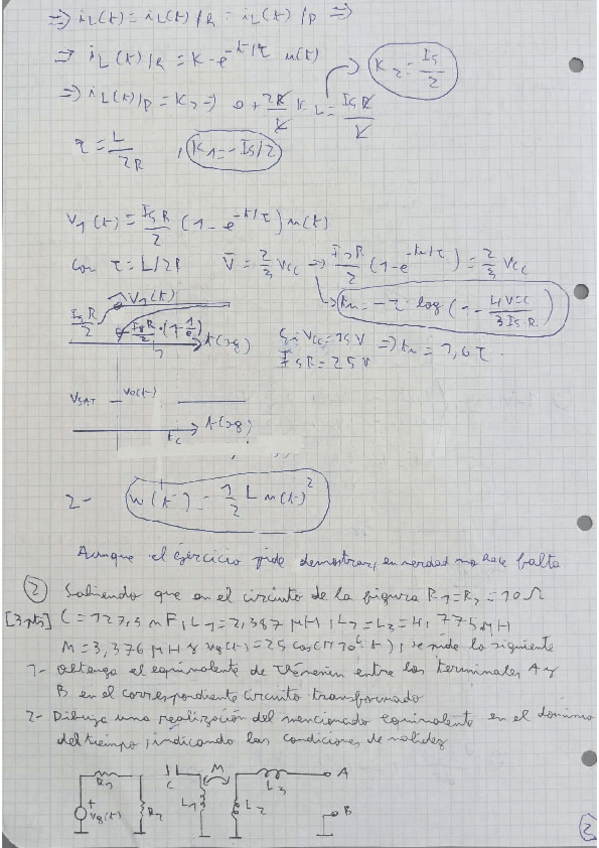 => iL(t) = iL(t)/R = iL(t)/P =>
=> iL(t)/R = K · e^-t/τ u(t)
K2 = Is/2
=> iL(t)/P = K2 => 0 + 2R/L K2 = IsR/L
τ = L/2R , K1 = -Is/2
V1(t) = IsR/2 (1 - e^-t/τ) u(t)
Con τ = L/2R V = 2/3 Vcc -> IsR/2 (1 - e^-tu/τ) = 2/3 Vcc
tu = -τ · log (1 - 4Vcc/3Is·R)
V1(t)
IsR/2
IsR/2 · (1 - 1/e)
t(sg)
Si Vcc = 15V => tu = 1,6τ
IsR = 25V
VSAT Vo(t)
tc t(sg)
2- w(t) = 1/2 L u(t)^2
Aunque el ejercicio pide demostrar, en verdad no hace falta
② Sabiendo que en el circuito de la figura R1=R2=10 Ω
[3pts] C = 127,3 nF, L1=2,387 μH, L2=L3=4,775 μH
M=3,376 μH y vg(t)=25 cos(π10^6 t), se pide lo siguiente
1- Obtenga el equivalente de Thévenin entre los terminales A y
B en el correspondiente circuito transformado
2- Dibuje una realización del mencionado equivalente en el dominio
del tiempo, indicando las condiciones de validez
R1 C M L3 A
vg(t) R2 L1 L2 B
2